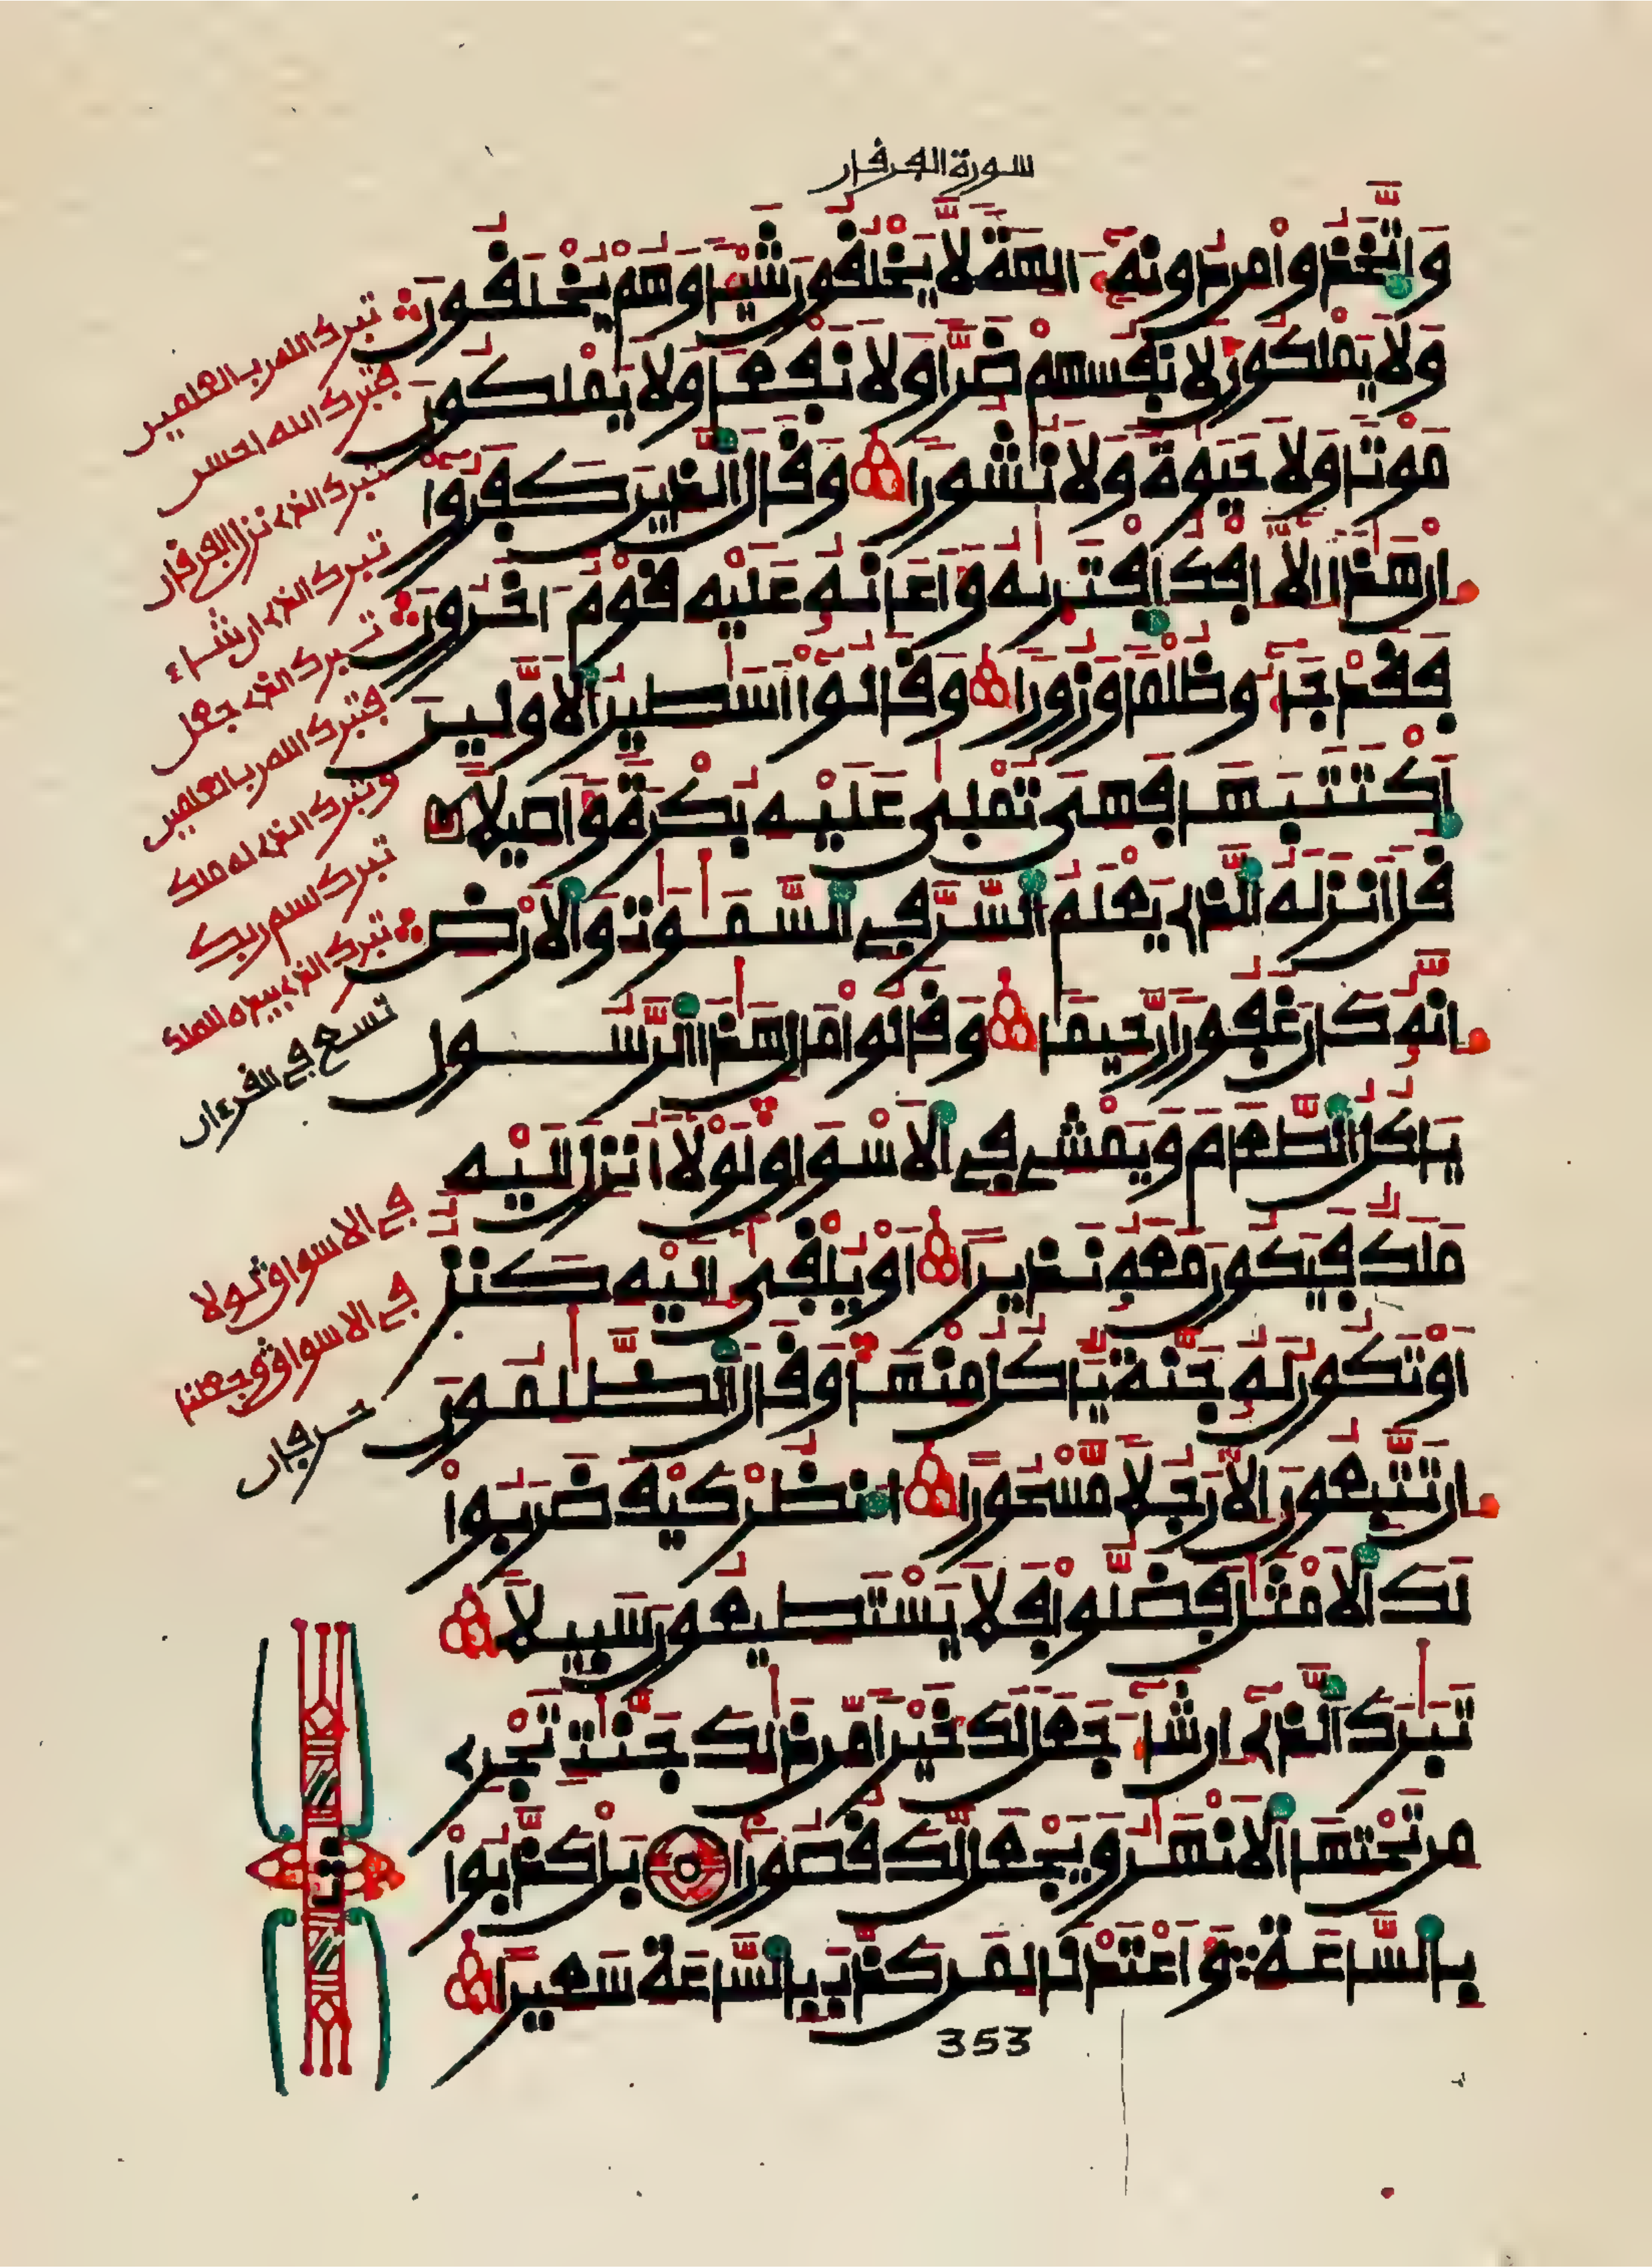 سورة الفرقان
وَاتَّخَذُوا مِن دُونِهِ ءَالِهَةً لَّا يَخْلُقُونَ شَيْئًا وَهُمْ يُخْلَقُونَ
وَلَا يَمْلِكُونَ لِأَنفُسِهِمْ ضَرًّا وَلَا نَفْعًا وَلَا يَمْلِكُونَ
مَوْتًا وَلَا حَيَوٰةً وَلَا نُشُورًا وَقَالَ الَّذِينَ كَفَرُوا
إِنْ هَٰذَا إِلَّا إِفْكٌ افْتَرَىٰهُ وَأَعَانَهُ عَلَيْهِ قَوْمٌ ءَاخَرُونَ
فَقَدْ جَآءُو ظُلْمًا وَزُورًا وَقَالُوا أَسَٰطِيرُ الْأَوَّلِينَ
اكْتَتَبَهَا فَهِيَ تُمْلَىٰ عَلَيْهِ بُكْرَةً وَأَصِيلًا
قُلْ أَنزَلَهُ الَّذِي يَعْلَمُ السِّرَّ فِي السَّمَٰوَٰتِ وَالْأَرْضِ
إِنَّهُ كَانَ غَفُورًا رَّحِيمًا وَقَالُوا مَالِ هَٰذَا الرَّسُولِ
يَأْكُلُ الطَّعَامَ وَيَمْشِي فِي الْأَسْوَاقِ لَوْلَا أُنزِلَ إِلَيْهِ
مَلَكٌ فَيَكُونَ مَعَهُ نَذِيرًا أَوْ يُلْقَىٰ إِلَيْهِ كَنزٌ
أَوْ تَكُونُ لَهُ جَنَّةٌ يَأْكُلُ مِنْهَا وَقَالَ الظَّٰلِمُونَ
إِن تَتَّبِعُونَ إِلَّا رَجُلًا مَّسْحُورًا انظُرْ كَيْفَ ضَرَبُوا
لَكَ الْأَمْثَٰلَ فَضَلُّوا فَلَا يَسْتَطِيعُونَ سَبِيلًا
تَبَٰرَكَ الَّذِي إِن شَآءَ جَعَلَ لَكَ خَيْرًا مِّن ذَٰلِكَ جَنَّٰتٍ تَجْرِي
مِن تَحْتِهَا الْأَنْهَٰرُ وَيَجْعَل لَّكَ قُصُورًا بَلْ كَذَّبُوا
بِالسَّاعَةِ وَأَعْتَدْنَا لِمَن كَذَّبَ بِالسَّاعَةِ سَعِيرًا
353
تبرك الله رب العلمين
فتبرك الله احسن
تبرك الذي نزل الفرقان
تبرك الذي ان شاء
تبرك الذي جعل
فتبرك الله رب العلمين
وتبرك الذي له ملك
تبرك اسم ربك
تبرك الذي بيده الملك
تسع في القرءان
في الاسواق لولا
في الاسواق وجعلنا
حرفان
ثمن